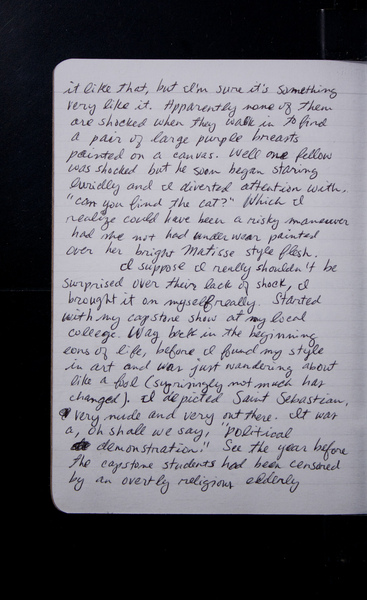 it like that, but I'm sure it's something
very like it. Apparently none of them
are shocked when they walk in to find
a pair of large purple breasts
painted on a canvas. Well one fellow
was shocked but he soon began staring
luridly and I diverted attention with,
"can you find the cat?" Which I
realize could have been a risky maneuver
had she not had underwear painted
over her bright Matisse style flesh.
I suppose I really shouldn't be
surprised over their lack of shock, I
brought it on myself really. Started
with my capstone show at my local
college. Way back in the beginning
eons of life, before I found my style
in art and was just wandering about
like a fool (surprisingly not much has
changed). I depicted Saint Sebastian,
very nude and very out there. It was
a, oh shall we say, "political
demonstration." See the year before
the capstone students had been censored
by an overtly religious elderly